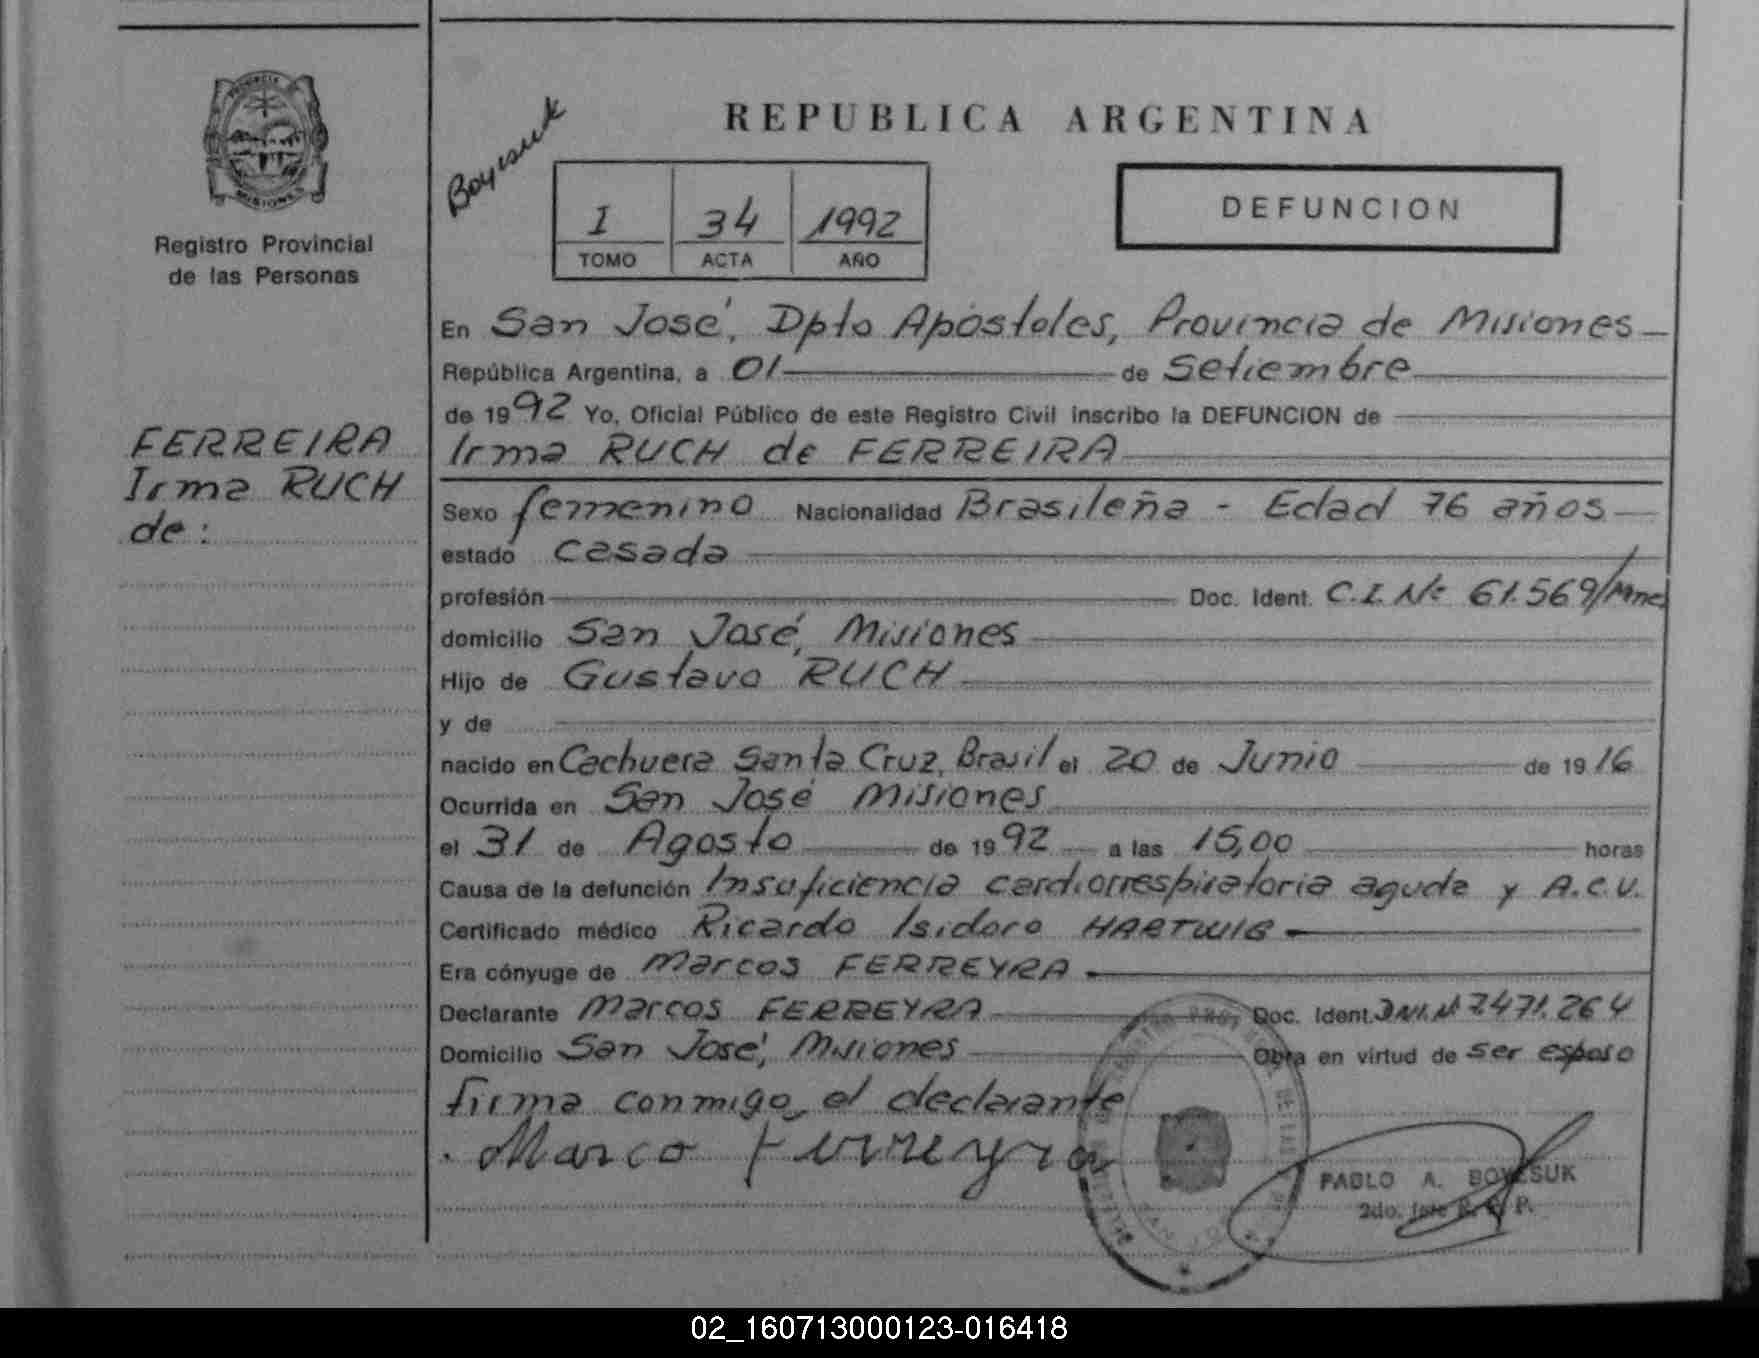 PROVINCIA
MISIONES
Registro Provincial
de las Personas
FERREIRA
Irma RUCH
de:
Boyesuk
REPUBLICA ARGENTINA
I 34 1992
TOMO ACTA AÑO
DEFUNCION
En San José, Dpto Apóstoles, Provincia de Misiones
República Argentina, a 01 de Setiembre
de 1992 Yo, Oficial Público de este Registro Civil inscribo la DEFUNCION de
Irma RUCH de FERREIRA
Sexo femenino Nacionalidad Brasileña - Edad 76 años
estado casada
profesión Doc. Ident. C.I. Nº 61.569/Mnes
domicilio San José, Misiones
Hijo de Gustavo RUCH
y de
nacido en Cachuera Santa Cruz, Brasil el 20 de Junio de 1916
Ocurrida en San José Misiones
el 31 de Agosto de 1992 a las 15,00 horas
Causa de la defunción Insuficiencia cardiorrespiratoria aguda y A.C.V.
Certificado médico Ricardo Isidoro HARTWIG
Era cónyuge de Marcos FERREYRA
Declarante Marcos FERREYRA Doc. Ident. DNI. Nº 7471.264
Domicilio San José, Misiones Obra en virtud de ser esposo
firma conmigo, el declarante
Marco Ferreyra
PABLO A. BOYESUK
2do. Jefe R. P. P.
02_160713000123-016418